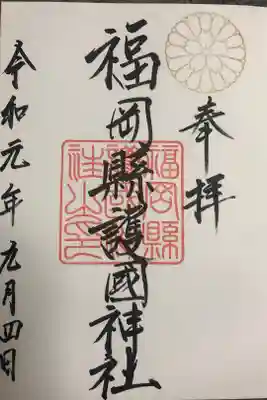 奉拝
福岡縣護國神社
福岡縣護國神社之印
令和元年九月四日